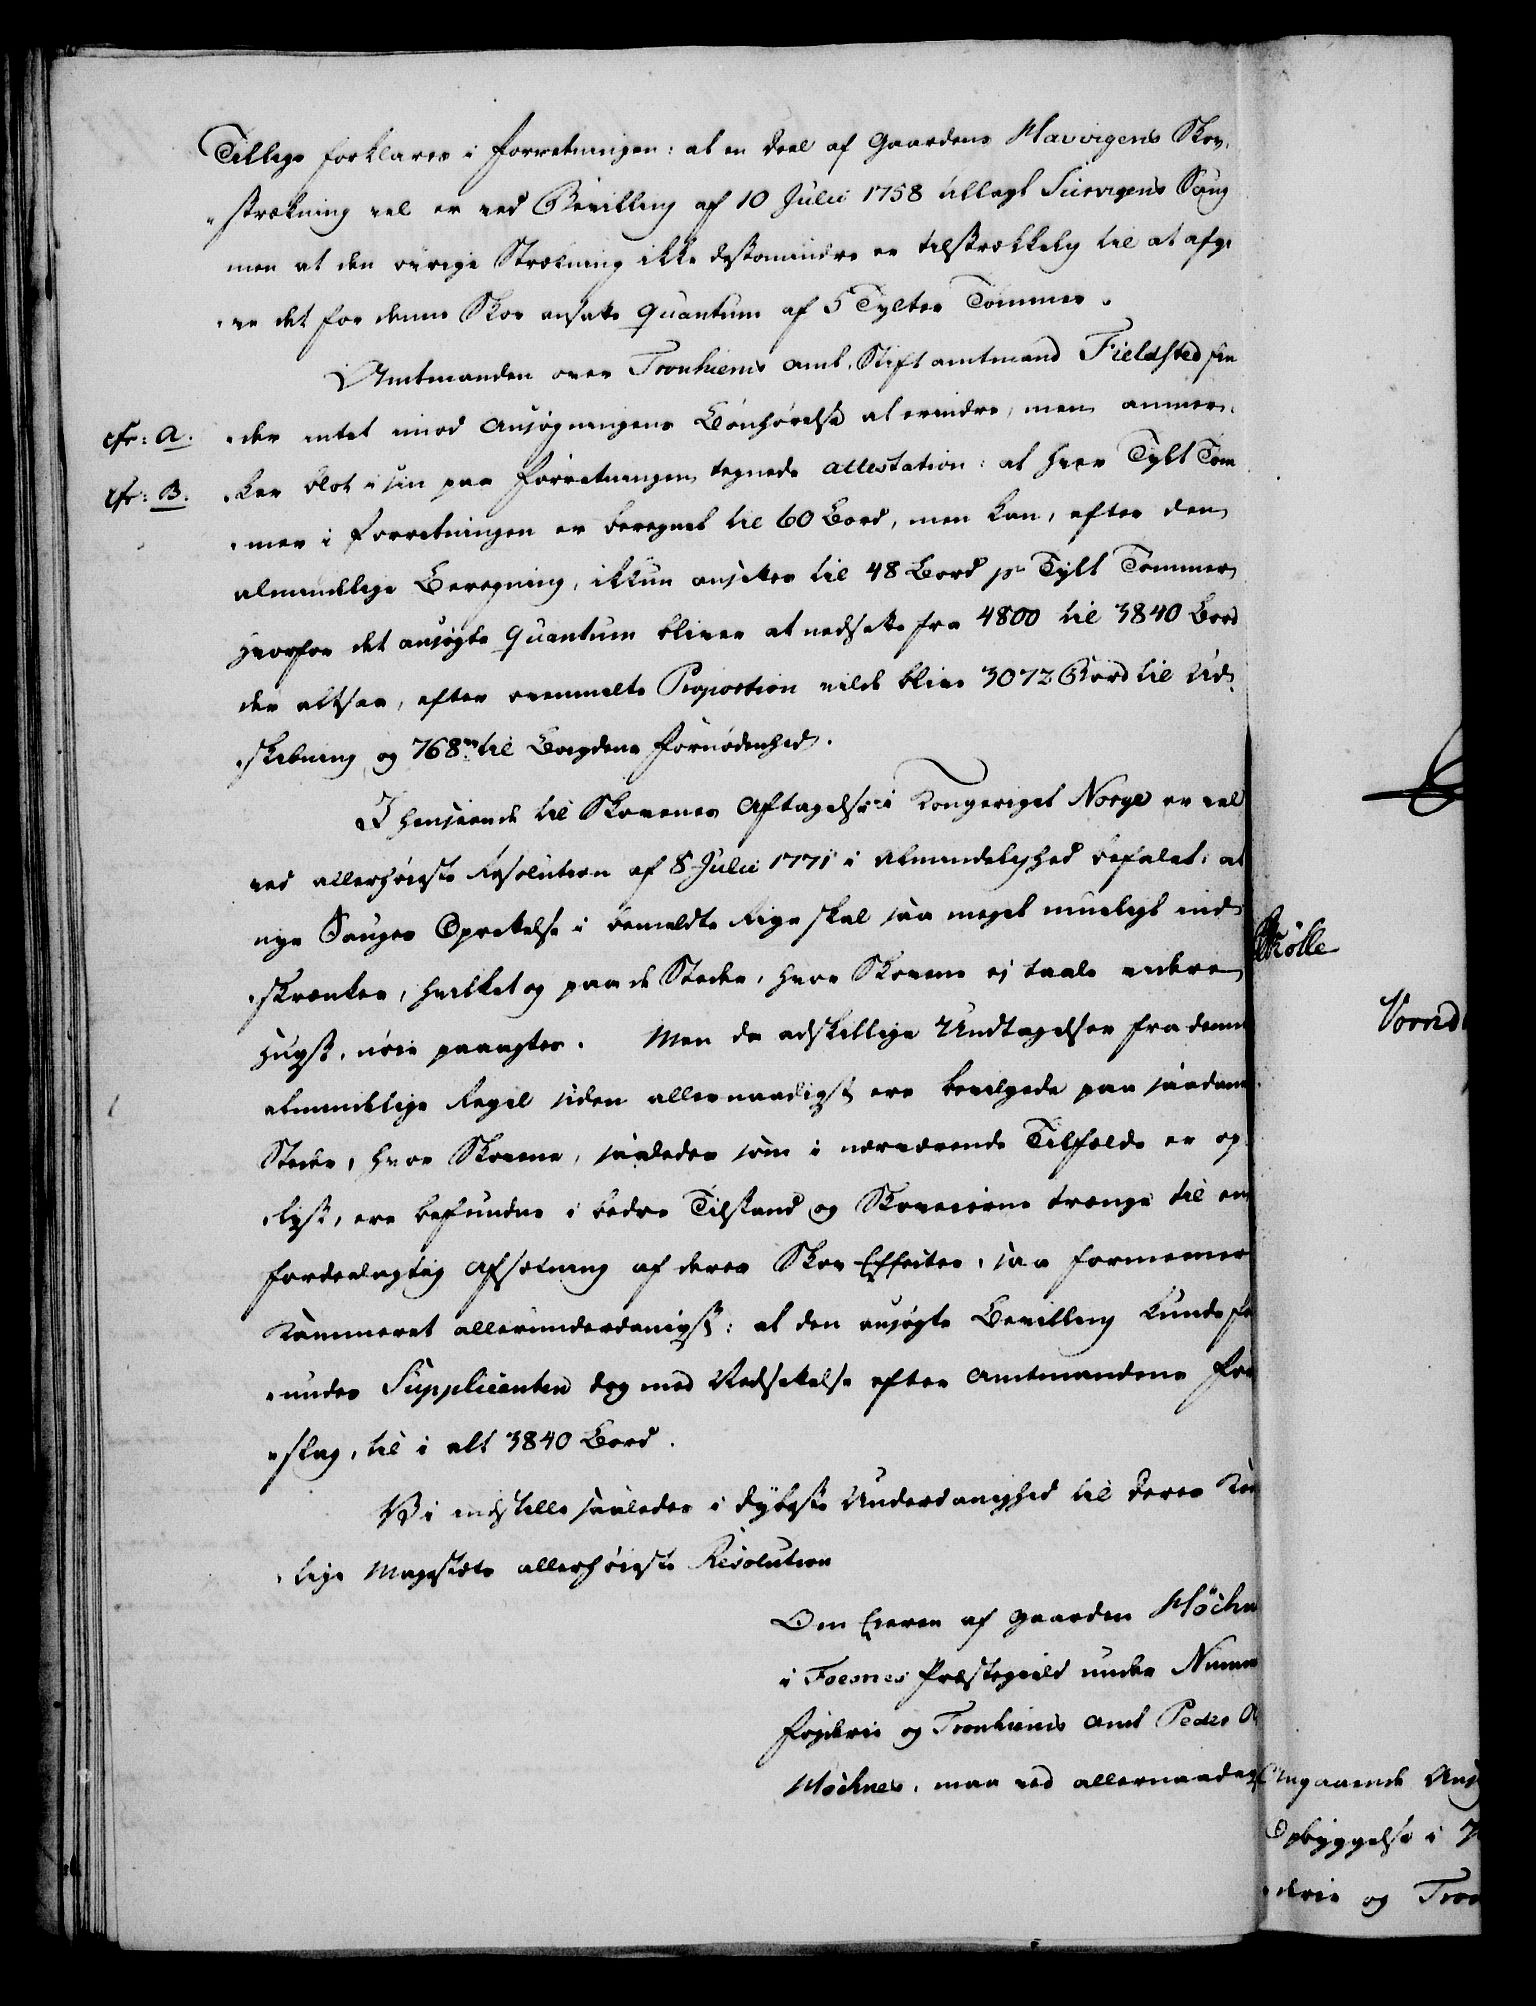 Tillige forklares i Forretningen: at en Deel af Gaardens Havvigens Skov-
„strækning vel er ved Bevilling af 10 Julii 1758 tillagt Suervigens Saug
men at den øvrige Strækning ikke destomindre er tilstrækkelig til at afgi-
„ve det for denne Skov ansatte Quantum af 5 Tylter Tømmer.
Amtmanden over Tronhiems Amt, Stiftamtmand Fieldsted fin
cfr: A. „der intet imod Ansøgningens Bønhørelse at erindre, men anmær-
cfr: B. „ker blot i sin paa Forretningen tegnede Attestation: at hver Tylt Tøm
„mer i Forretningen er beregnet til 60 Bord, men kan, efter den
almindelige Beregning, ikkun ansættes til 48 Bord pr Tylt Tømmer,
hvorfor det ansøgte Quantum bliver at nedsætte fra 4800 til 3840 Bord
der altsaa, efter ovenmelte Proportion vilde blive 3072 Bord til Ud-
„skibning og 768 til Bøygdens Fornødenhed.
I Henseende til Skovenes Aftagelse i Kongeriget Norge er vel
ved allerhøieste Resolution af 8 Julii 1771 i Almindelighed befalet: at
nye Sauges Oprettelse i bemeldte Rige skal saa meget mueligt ind-
„skrænkes, hvilket og paa de Steder, hvor Skovene ej taale videre
Hugst, nøie paaagtes. Men da adskillige Undtagelser fra denne
almindelige Regel siden allernaadigst ere bevilgede paa saadanne
Steder, hvor Skovene, saaledes som i nærværende Tilfælde er op-
„lyst, ere befundne i bedre Tilstand og Skoveierne trænge til en
fordeelagtig Afsætning af deres Skov Effecter, saa formeener
Kammeret allerunderdanigst: at den ansøgte Bevilling kunde for
„undes Supplicanten dog med Nedsættelse efter Amtmandens For
„slag, til i alt 3840 Bord.
Vi indstille saaledes i dybeste Underdanighed til Deres Kon
„lige Majestæts allerhøieste Resolution
Om Eieren af Gaarden Høckn
i Foesnes Præstegield under Numm
Fogderie og Tronhiems Amt Peder O
Høcknes, maa ved allernaadigs
Skølle
Vornd
Angaaende Ans
Opbyggelse i
„derie og Tron